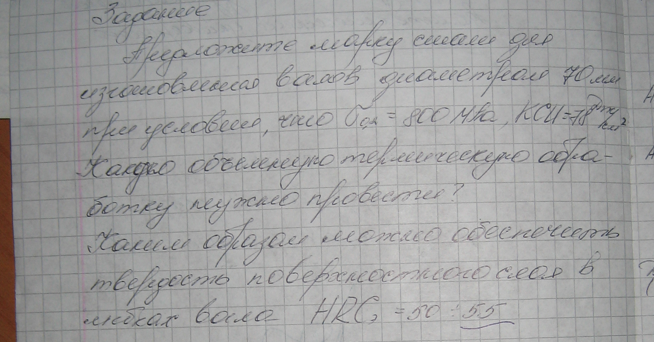 Задание
Предложите марку стали для
изготовления валов диаметром 70 мм
при условии, что σ = 800 МПа, KCU =
Какую объемную термическую обра-
ботку нужно провести?
Каким образом можно обеспечить
твердость поверхностного слоя в
вала HRCэ = 50 ÷ 55